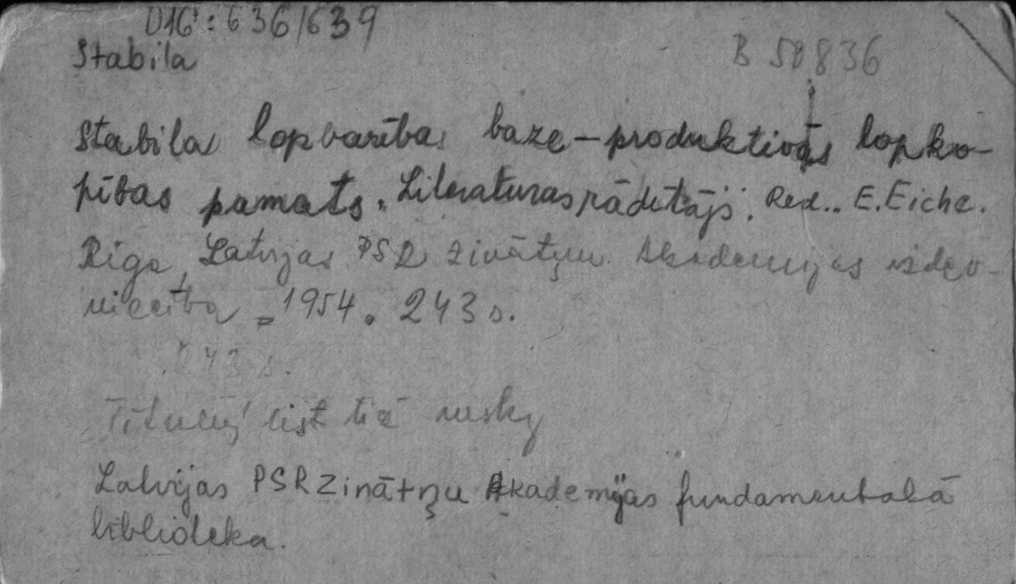 016:636/639
Stabila
B 50836
Stabila lopbarības baze – produktivās lopko-
pības pamats. Literaturas rādītājs. Red.. E. Eiche.
Riga, Latvijas PSR Zinātņu Akademijas izdev-
niecība, 1954. 243 s.
243 s.
Titulný list též rusky
Latvijas PSR Zinātņu Akademijas fundamentalā
biblioteka.